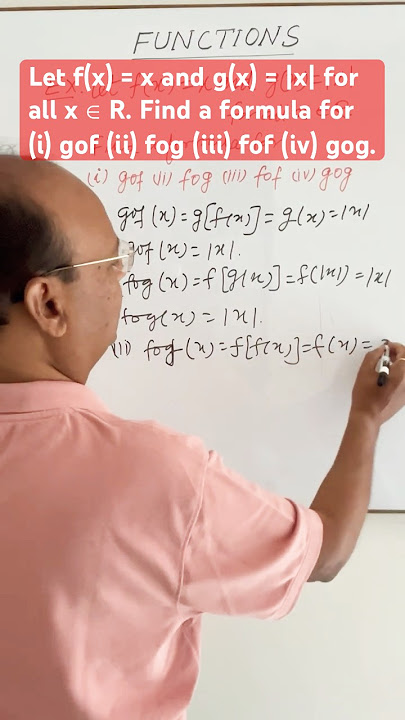 FUNCTIONS
Let f(x) = x and g(x) = |x| for
all x ∈ R. Find a formula for
(i) gof (ii) fog (iii) fof (iv) gog.
(i) gof (ii) fog (iii) fof (iv) gog
gof(x) = g[f(x)] = g(x) = |x|
gof(x) = |x|.
fog(x) = f[g(x)] = f(|x|) = |x|
fog(x) = |x|.
fog(x) = f[f(x)] = f(x) =